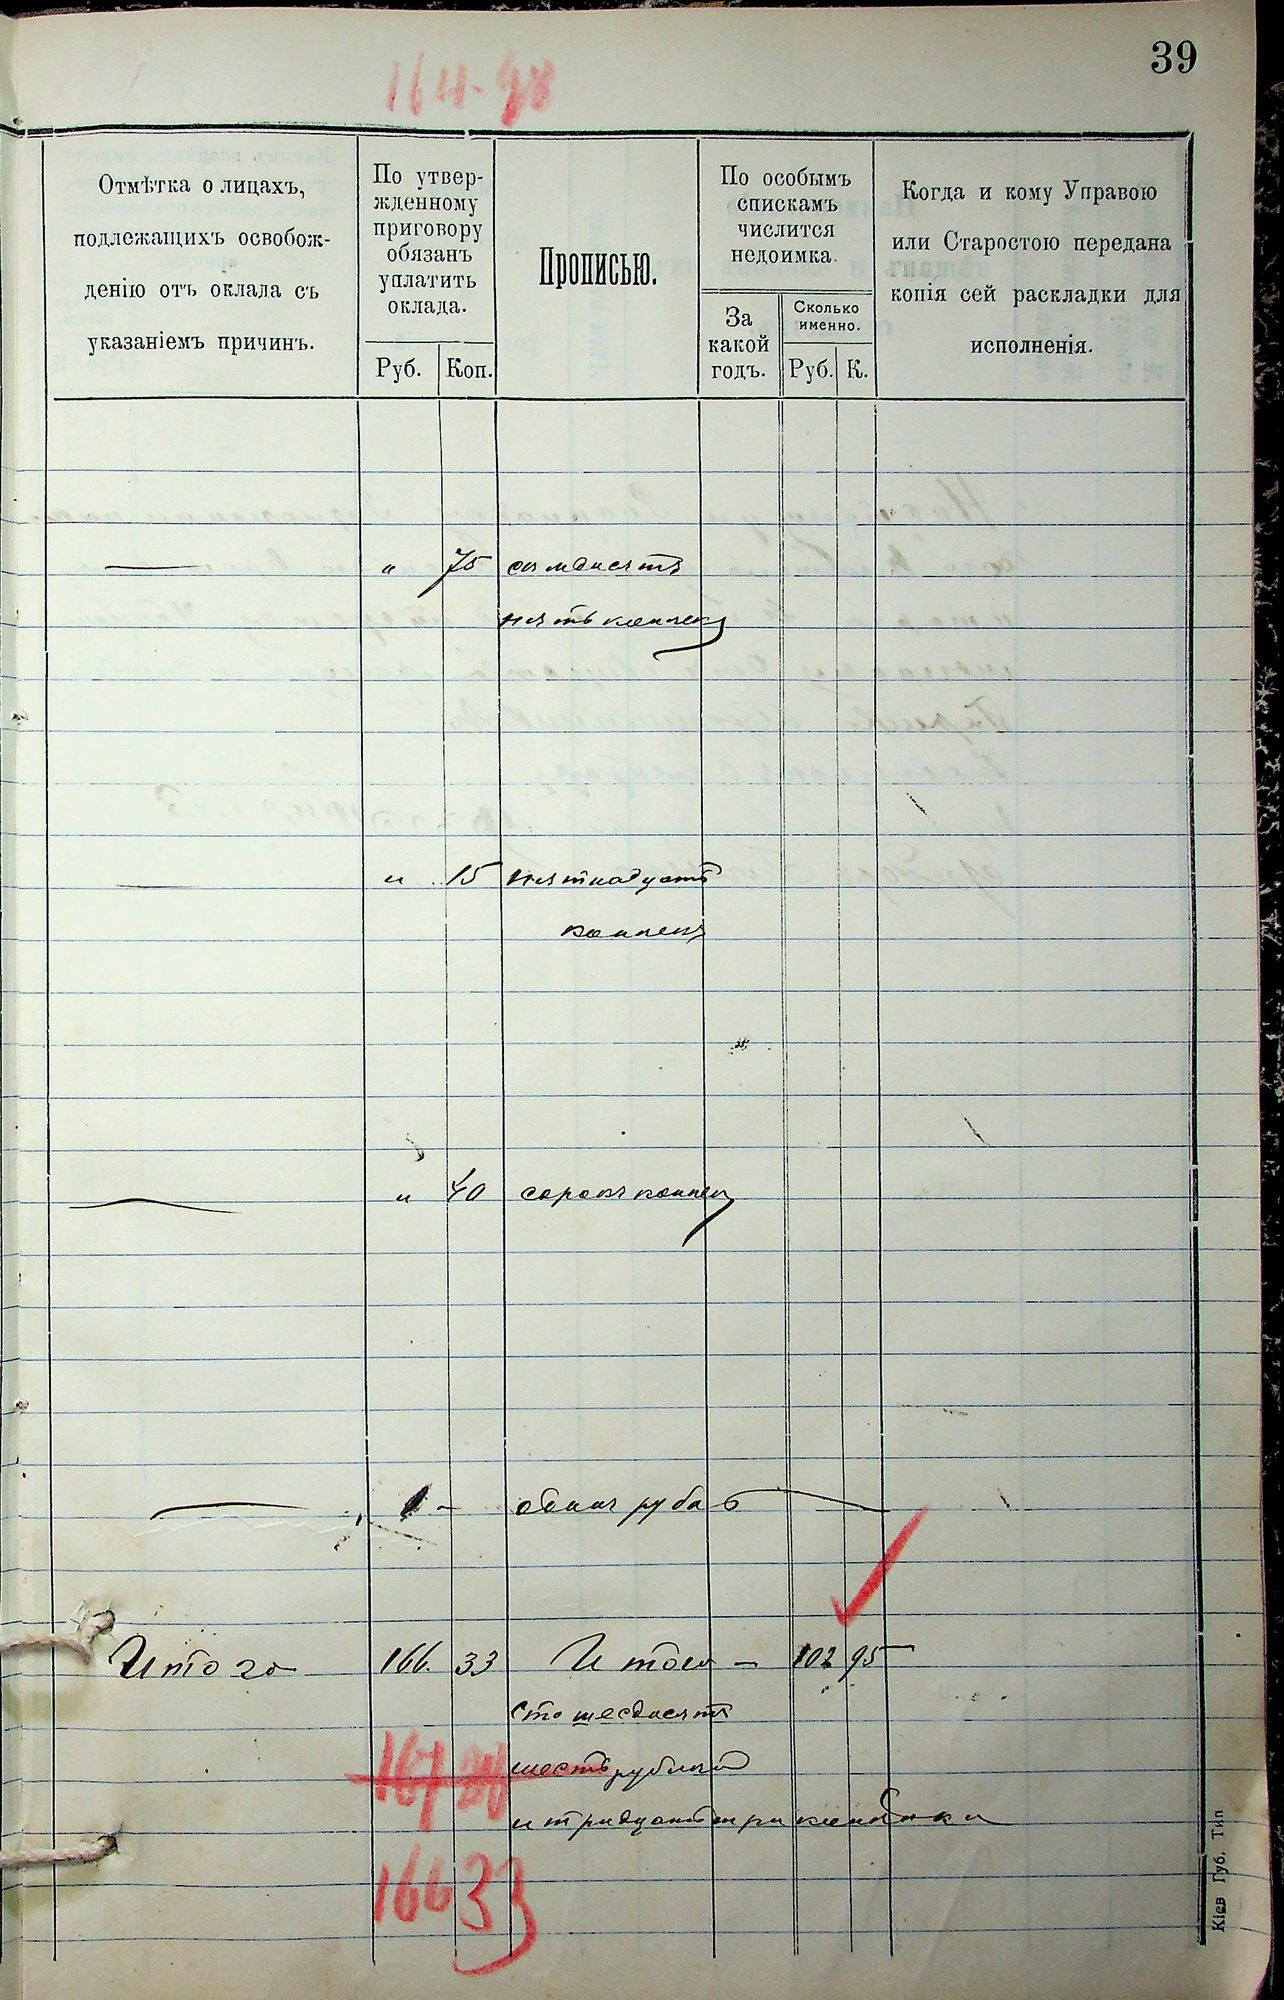 39
164-98
Отмѣтка о лицахъ,
подлежащихъ освобож-
денію отъ оклада съ
указаніемъ причинъ.
По утвер-
жденному
приговору
обязанъ
уплатить
оклада.
Руб.
Коп.
Прописью.
По особымъ
спискамъ
числится
недоимка.
За
какой
годъ.
Сколько
именно.
Руб.
К.
Когда и кому Управою
или Старостою передана
копія сей раскладки для
исполненія.
— " 75 семдесятъ
пять копеекъ
— " 15 пятнадцать
копеекъ
— " 40 сорокъ копеекъ
— 1 - одинъ рубль
Итого 166. 33 Итого — 102 95
сто шесдесятъ
шесть рублей
и тридцать три копѣйки
166 33
Кіев Губ. Тип